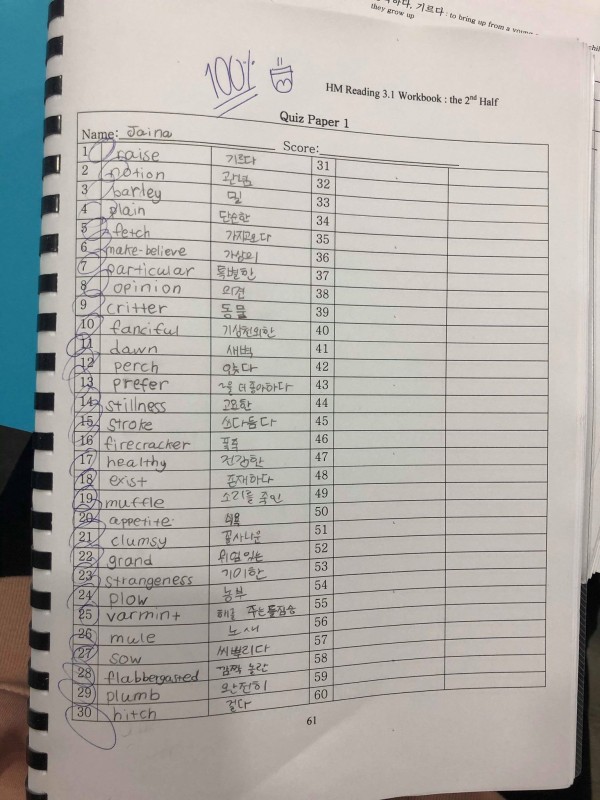 하다, 기르다 : to bring up from a young
they grow up
100%
HM Reading 3.1 Workbook : the 2nd Half
Quiz Paper 1
Name: Jaina Score:
1 raise 기르다 31
2 notion 관념 32
3 barley 밀 33
4 plain 단순한 34
5 fetch 가지고오다 35
6 make-believe 가상의 36
7 particular 특별한 37
8 opinion 의견 38
9 critter 동물 39
10 fanciful 기상천외한 40
11 dawn 새벽 41
12 perch 앉다 42
13 prefer ~을 더 좋아하다 43
14 stillness 고요한 44
15 stroke 쓰다듬다 45
16 firecracker 폭죽 46
17 healthy 건강한 47
18 exist 존재하다 48
19 muffle 소리를 죽인 49
20 appetite 식욕 50
21 clumsy 꼴사나운 51
22 grand 위엄있는 52
23 strangeness 기이한 53
24 plow 농부 54
25 varmint 해를 주는 들짐승 55
26 mule 노새 56
27 sow 씨뿌리다 57
28 flabbergasted 깜짝 놀란 58
29 plumb 완전히 59
30 hitch 걸다 60
61